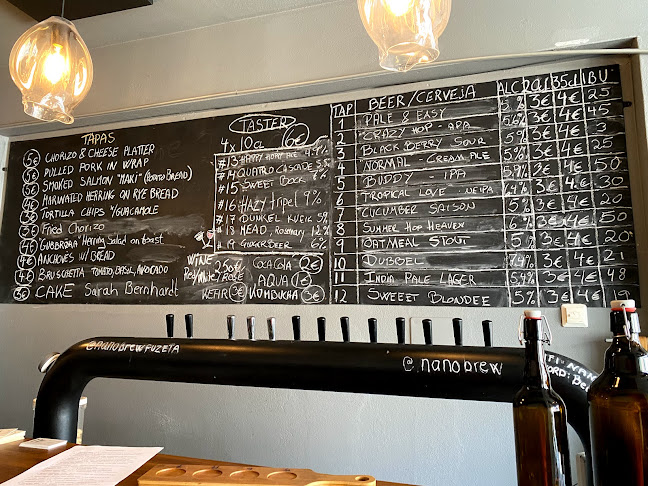 TAPAS
5€ CHORIZO & CHEESE PLATTER
5€ PULLED PORK IN WRAP
5€ SMOKED SALMON "MAKI" (POTATO BREAD)
MARINATED HERRING ON RYE BREAD
TORTILLA CHIPS "GUACAMOLE
3€ Fried Chorizo
4€ GUBBRÖRA "Herring Salad on toast
4€ ANCHOVIES W/ BREAD
4€ BRUSCHETTA TOMATO, BASIL, AVOCADO
3€ CAKE Sarah Bernhardt
TASTER
4 x 10cl 6€
#13 HAPPY HOPPY
#14 QUATRO CASCADE
#15 SWEET BOCK 8%
#16 HAZY
#17 TRIPEL 9%
#17 DUNKEL
#18 HEAD, Rosemary 12%
#19 6%
WINE
Red/White/Rosé
COCA COLA 2€
AQUA 1€
KEFIR 3€ KOMBUCHA 3€
TAP BEER/CERVEJA ALC 20cl 35cl IBU
1 PALE & EASY 5% 3€ 4€ 25
2 CRAZY HOP - APA 3€ 4€ 45
3 BLACK BERRY SOUR 5% 3€ 4€ 3
4 NORMAL - CREAM ALE 5% 3€ 4€ 25
5 BUDDY - IPA 3€ 4€ 50
6 TROPICAL LOVE NEIPA 3€ 4€ 30
7 CUCUMBER SAISON 5% 3€ 4€ 25
8 SUMMER HOP HEAVEN 3€ 4€ 50
9 OATMEAL STOUT 5% 3€ 4€ 20
10 DUBBEL 3€ 4€ 21
11 INDIA PALE LAGER 3€ 4€ 48
12 SWEEET BLONDEE 5% 3€ 4€ 19
@NANOBREWFUZETA
@.nanobrew